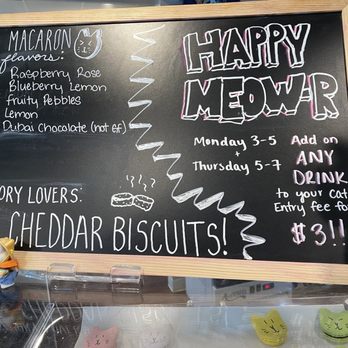 MACARON
flavors:
Raspberry Rose
Blueberry Lemon
Fruity Pebbles
Lemon
Dubai Chocolate (not gf)
ORY LOVERS:
CHEDDAR BISCUITS!
HAPPY
MEOW-R
Monday 3-5
Thursday 5-7
Add on
ANY
DRINK
to your Cat
Entry fee fo
$3!!